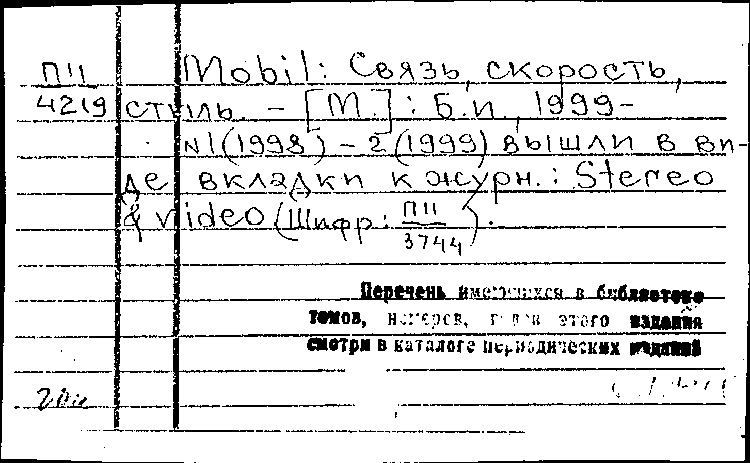 П11 Mobil: Связь, скорость,
4219 стиль. - [М.]: Б.и., 1999-
№1(1998) - 2(1999) вышли в ви-
де вкладки к журн.: Stereo
& video (Шифр: П11/3744).
Перечень имеющихся в библиотеке
томов, номеров, годов этого издания
смотри в каталоге периодических изданий